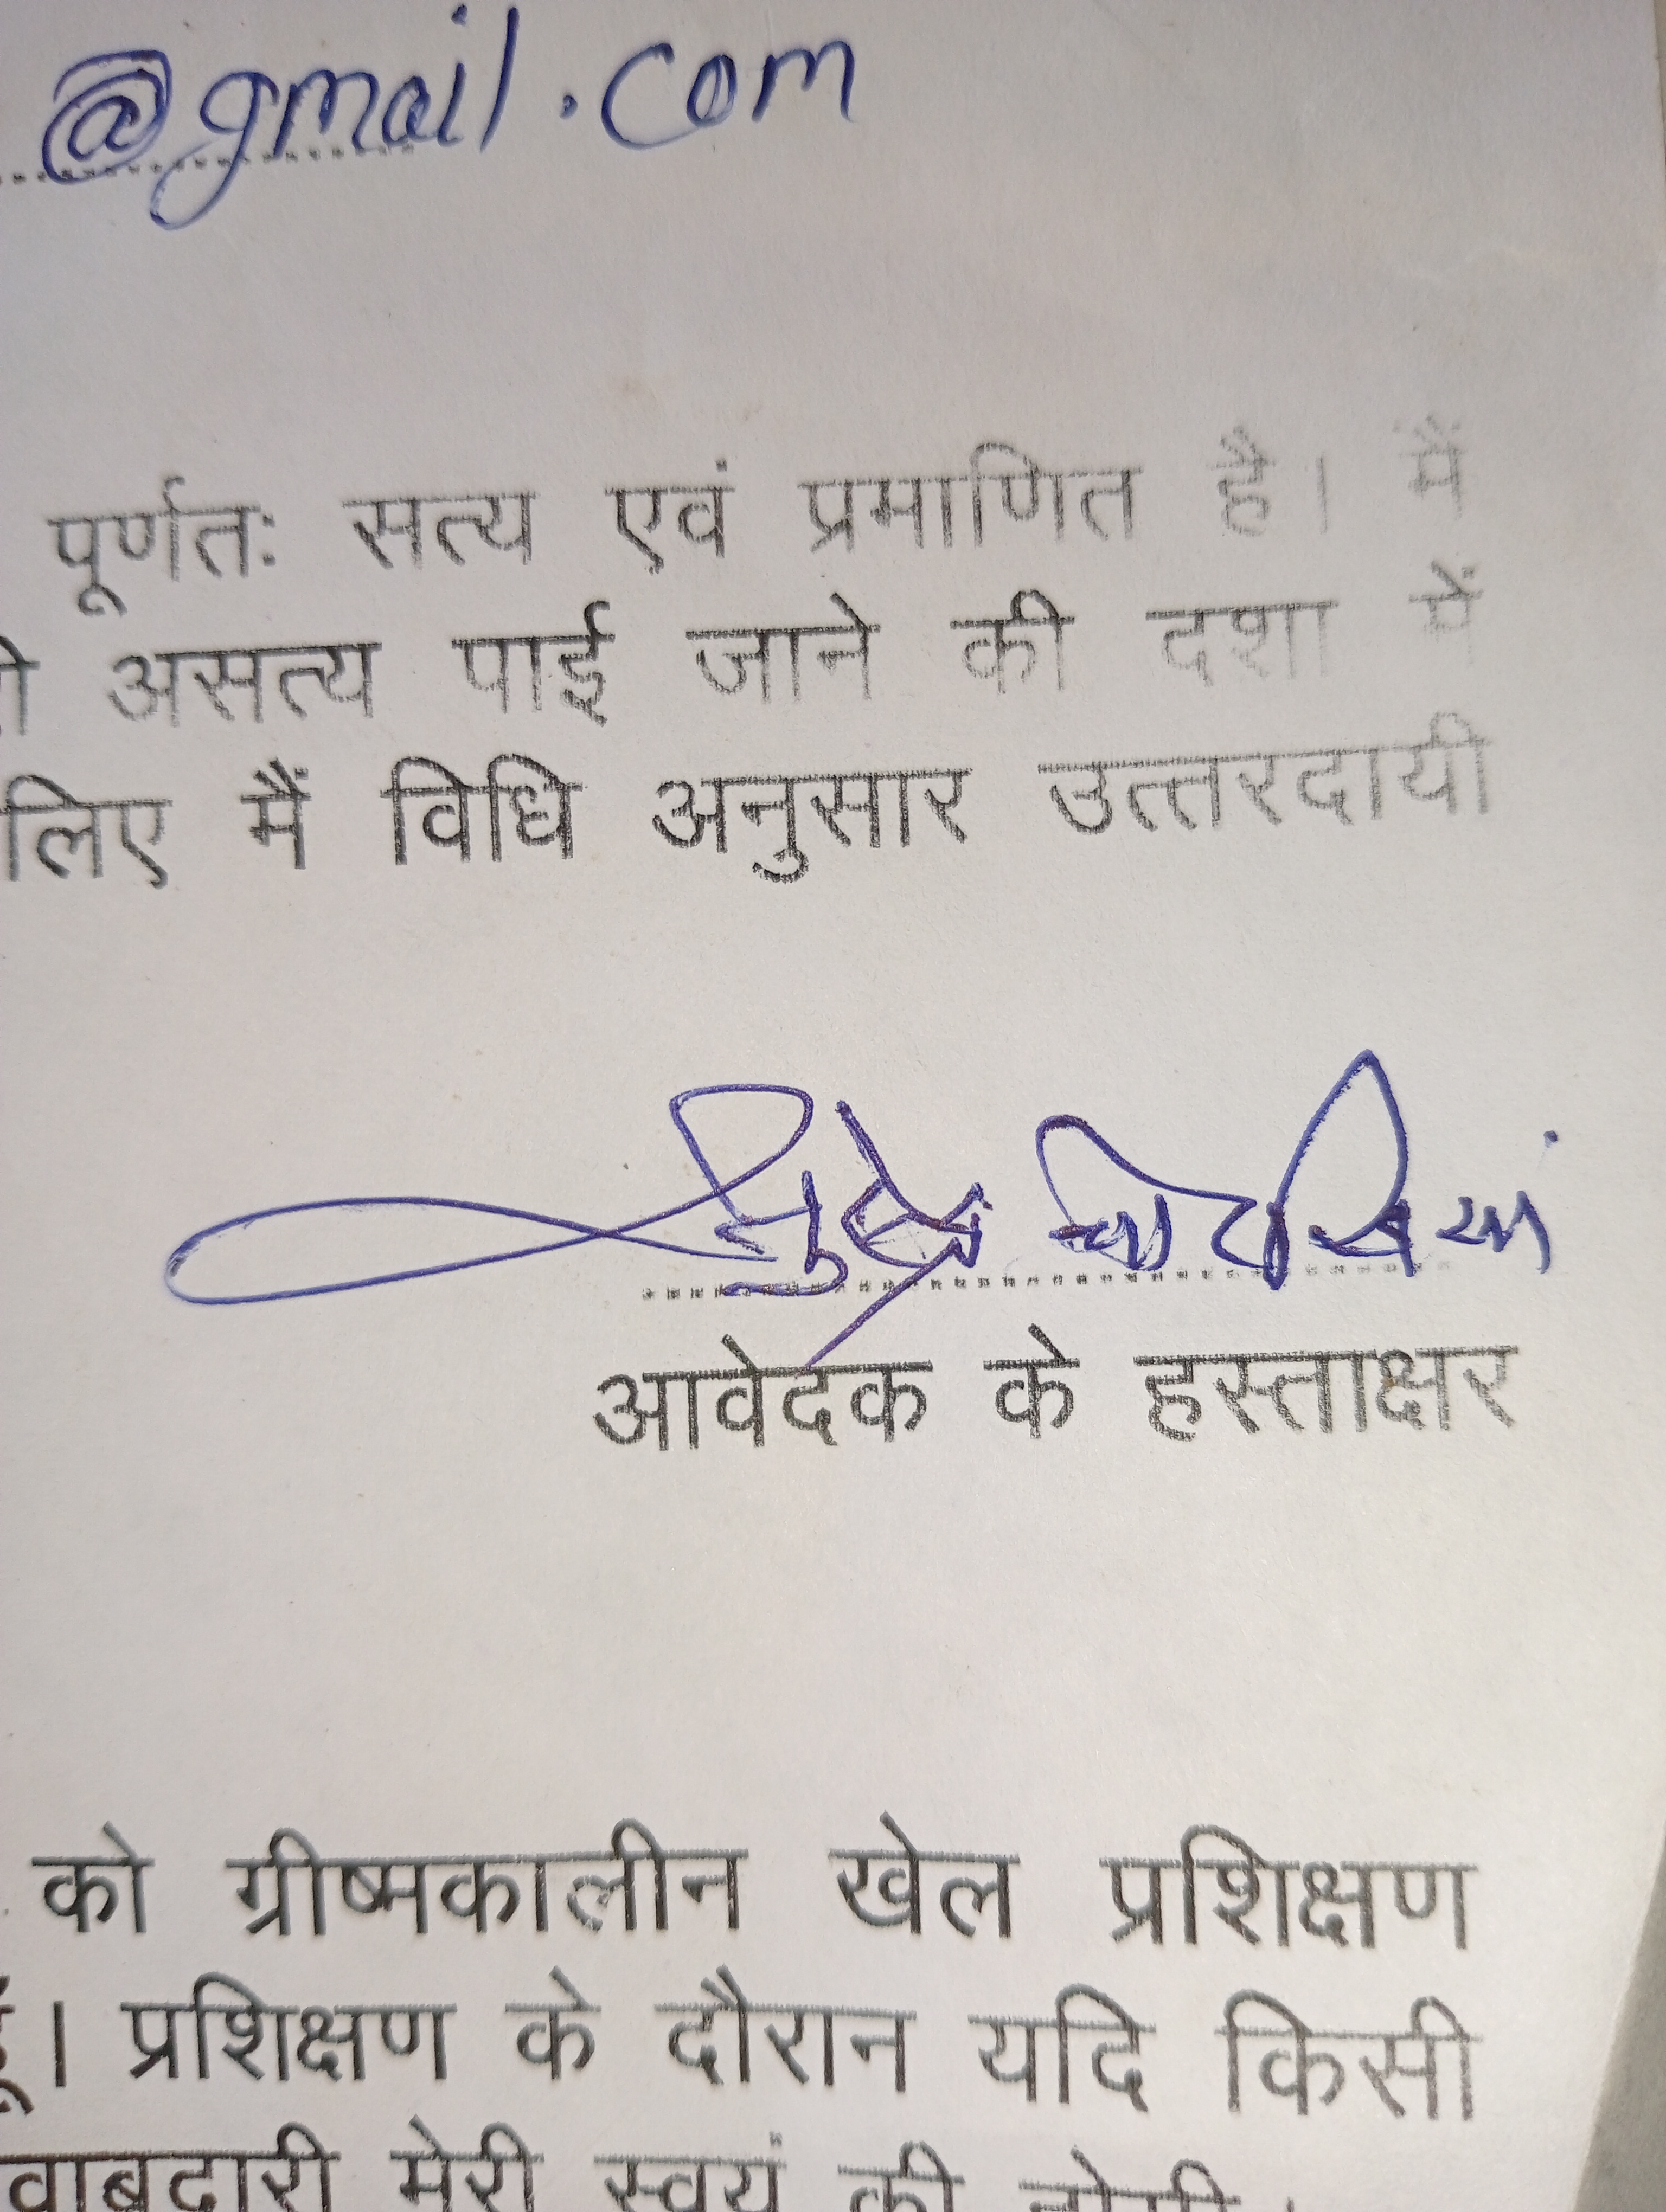 @gmail.com
पूर्णतः सत्य एवं प्रमाणित है। मैं
असत्य पाई जाने की दशा में
लिए मैं विधि अनुसार उत्तरदायी
आवेदक के हस्ताक्षर
को ग्रीष्मकालीन खेल प्रशिक्षण
। प्रशिक्षण के दौरान यदि किसी
मेरी स्वयं की होगी।